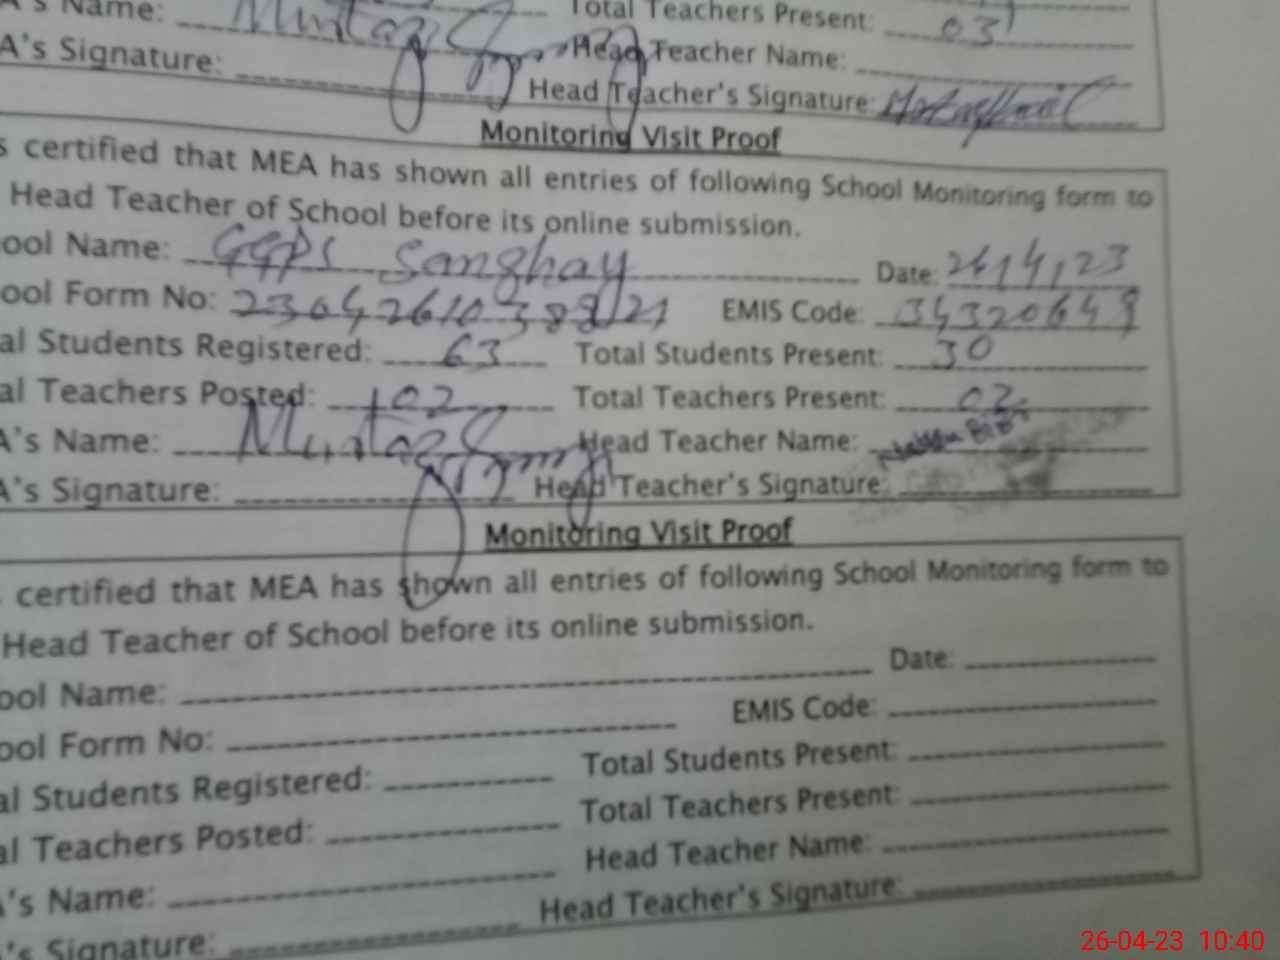 A's Name: Mumtaz Total Teachers Present: 03
A's Signature: Head Teacher Name:
Head Teacher's Signature:
Monitoring Visit Proof
s certified that MEA has shown all entries of following School Monitoring form to
Head Teacher of School before its online submission.
ool Name: GGPS Sanghay Date: 26/4/23
ool Form No: EMIS Code: 34320649
al Students Registered: 63 Total Students Present: 30
al Teachers Posted: 02 Total Teachers Present: 02
A's Name: Mumtaz Head Teacher Name: Bibi
A's Signature: Head Teacher's Signature:
Monitoring Visit Proof
certified that MEA has shown all entries of following School Monitoring form to
Head Teacher of School before its online submission.
ool Name: Date:
ool Form No: EMIS Code:
al Students Registered: Total Students Present:
al Teachers Posted: Total Teachers Present:
A's Name: Head Teacher Name:
's Signature: Head Teacher's Signature:
26-04-23 10:40